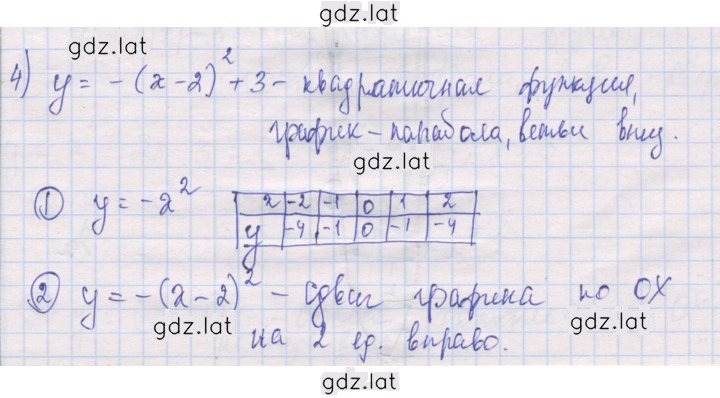 gdz.lat
gdz.lat
4) y = -(x-2)² + 3 - квадратичная функция,
график - парабола, ветви вниз.
gdz.lat
① y = -x²
x -2 -1 0 1 2
y -4 -1 0 -1 -4
② y = -(x-2)² - сдвиг графика по OX
gdz.lat gdz.lat
на 2 ед. вправо.
gdz.lat